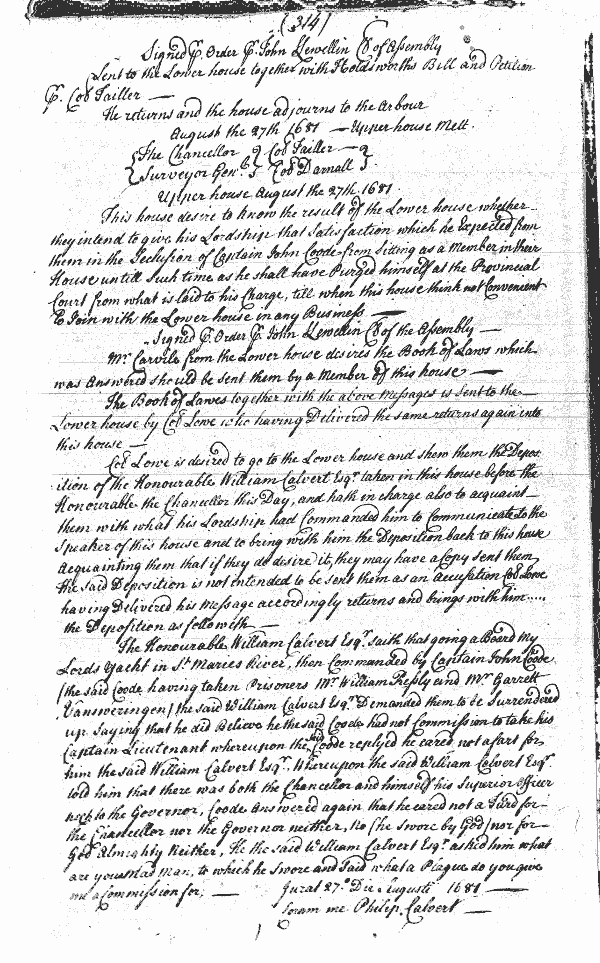 (314)
Signed p. Order p. John Llewellin Cl of Assembly
Sent to the Lower house together with Holdsworths Bill and Petition
p. Coll Tailler —
He returns and the house adjourns to the Arbour
August the 27th 1681 — Upper house Mett.
{The Chancellor } Coll Tailler — }
{Surveyor Genll } Coll Darnall }
Upper house August the 27th 1681.
This house desire to know the result of the Lower house whether
they intend to give his Lordship that Satisfaction which he Expected from
them in the Seclusion of Captain John Coode from Sitting as a Member in their
House untill Such time as he shall have Purged himself at the Provincial
Court from what is laid to his Charge, till when this house think not Convenient
to Join with the Lower house in any Business —
Signed p. Order p. John Llewellin Cl of the Assembly —
Mr. Carvile from the Lower house desires the Book of Laws which
was Answered should be sent them by a Member of this house —
The Book of Lawes together with the above Messages is sent to the
Lower house by Coll Lowe who having Delivered the same returns again into
this house —
Coll Lowe is desired to go to the Lower house and shew them the Depos
ition of the Honourable William Calvert Esqr. taken in this house before the
Honourable the Chancellor this Day, and hath in charge also to acquaint
them with what his Lordship had Commanded him to Communicate to the
Speaker of this house and to bring with them the Deposition back to this house
Acquainting them that if they do desire it, they may have a Copy sent them,
the said Deposition is not intended to be sent them as an Accusation Coll Lowe
having Delivered his Message accordingly returns and brings with him.....
the Deposition as followeth —
The Honourable William Calvert Esqr. saith that going a Board my
Lords Yacht in St. Maries River, then Commanded by Captain John Coode
(the said Coode having taken Prisoners Mr. William and Mr. Garrett
Vansweringen) the said William Calvert Esqr. Demanded them to be Surrendered
up. Saying that he did Believe he the said Coode had not Commission to take his
Captain Lieutenant whereupon the said Coode replyed he cared not a fart for
him the said William Calvert Esqr., Whereupon the said William Calvert Esqr.
told him that there was both the Chancellor and himself his Superior Officer
next to the Governor, Coode Answered again that he cared not a Turd for
the Chancellor nor the Governor neither, No (he swore by God) nor for
God Almighty Neither, He the said William Calvert Esqr. asked him what
are you Mad Man, to which he Swore and Said what a Plague do you give
me a Commission for; —    Jurat 27o. Die Augusti 1681 —
Coram me Philip Calvert —